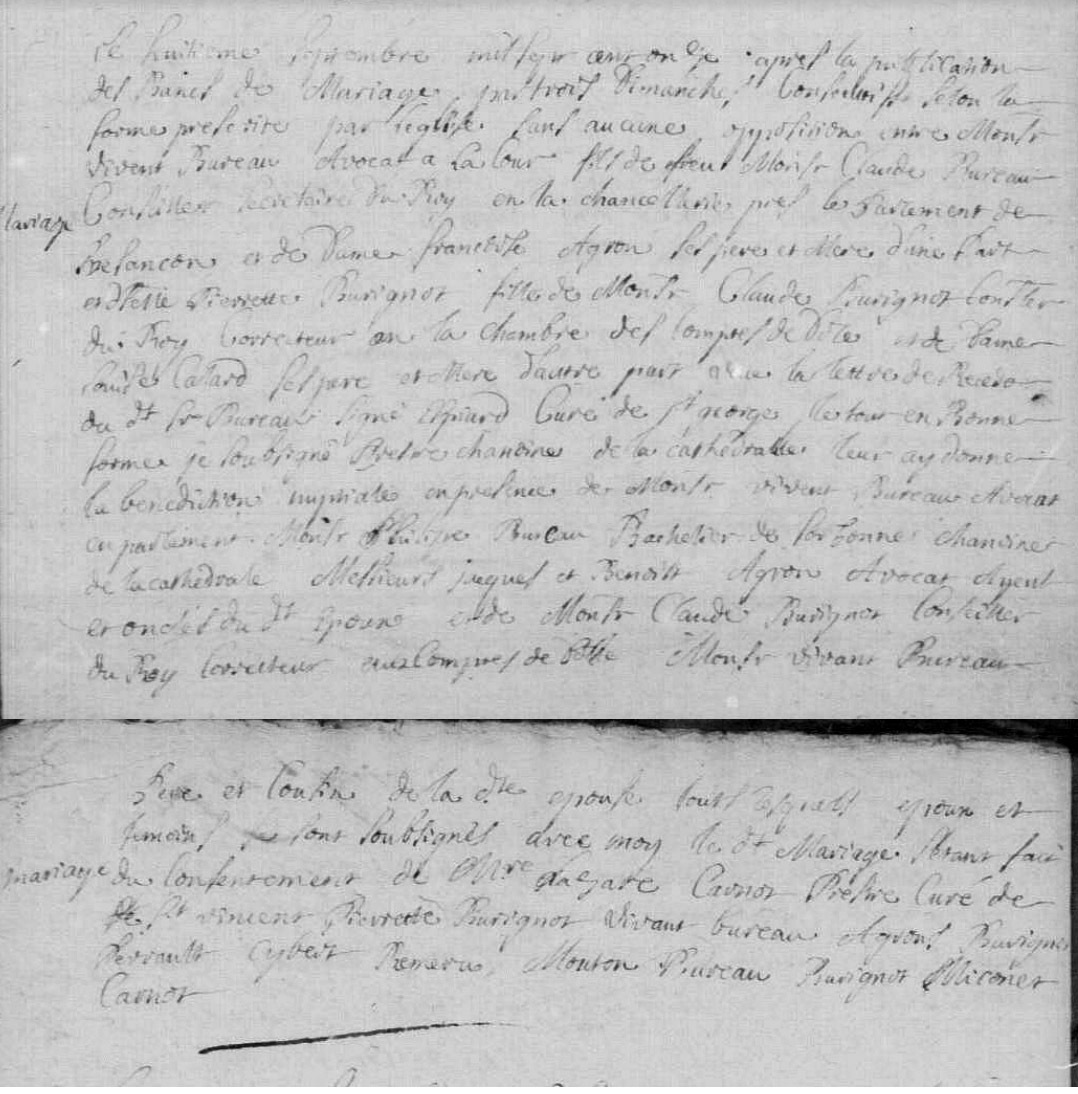 Le huitieme septembre mil sept cent onze apres la publication
des Bancs de Mariage par trois Dimanches Consecutifs selon la
forme prescrite par l'eglise sans aucune opposition entre Monsr
vivent Bureau Avocat a La Cour fils de feu Monsr Claude Bureau
Mariage
Conseiller Secretaire du Roy en la chancellerie pres le Parlement de
Besancon et de Dame francoise Agron ses pere et Mere d'une Part
et dlle Pierrette Buvignot fille de Monsr Claude Buvignot Conser
du Roy Correcteur en la Chambre des Comptes de Dole et de Dame
Louise Catard ses pere et Mere d'autre part veue la lettre de Recedo
du dt Sr Bureau signé Curé de st george le tour en Bonne
forme je soubsigné Prestre chanoine de la cathedralle leur ay donne
la benediction nuptiale en presence de Monsr vivent Bureau Avocat
en parlement Monsr Philipe Bureau Bachelier de sorbonne chanoine
de la cathedrale Messieurs jaques et Benoist Agron Avocat Ayeul
et oncles du dt Epoux et de Monsr Claude Buvignot Conseiller
du Roy Correcteur aux Comptes de Dole Monsr vivant Bureau
Pere et Cousin de la dte epouse touts lesquels epoux et
temoins se sont soubsignés avec moy le dt Mariage estant fait
mariage
du Consentement de Mre Lazare Carnot Prestre Curé de
St vincent Pierrette Buvignot Vivant bureau Agrons Buvignot
Perrault Cybert Mouton Bureau Buvignot Miconet
Carnot